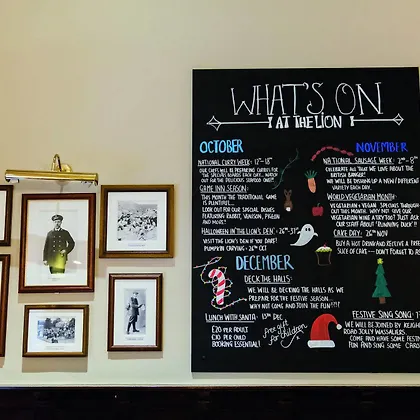 WHAT'S ON
AT THE LION
OCTOBER
NATIONAL CURRY WEEK: 12TH - 18TH
OUR CHEFS WILL BE PREPARING CURRIES FOR
THE SPECIALS BOARD EACH DAY... WATCH
OUT FOR THE DELICIOUS SEAFOOD ONES!!
GAME INN SEASON:
THIS MONTH THE TRADITIONAL GAME
IS PLENTIFUL...
LOOK OUT FOR OUR SPECIAL DISHES
FEATURING RABBIT, VENISON, PIGEON
AND MORE!
HALLOWEEN IN THE LION'S DEN - 26TH - 31ST
VISIT THE LION'S DEN IF YOU DARE!
PUMPKIN CARVING - 26TH OCT
NOVEMBER
NATIONAL SAUSAGE WEEK: 2ND - 8TH
CELEBRATE ALL THAT WE LOVE ABOUT THE
BRITISH BANGER!
WE WILL BE DISHING UP A NEW DIFFERENT
VARIETY EACH DAY.
WORLD VEGETARIAN MONTH:
VEGETARIAN + VEGAN SPECIALS THROUGH
OUT THIS MONTH. WHY NOT GIVE OUR
VEGETARIAN MENU A TRY TOO? JUST ASK
OUR STAFF ABOUT 'RUNNING DUCK'!!
CAKE DAY: 26TH NOV
BUY A HOT DRINK AND RECEIVE A FREE
SLICE OF CAKE -- DON'T FORGET TO AS
DECEMBER
DECK THE HALLS:
WE WILL BE DECKING THE HALLS AS WE
PREPARE FOR THE FESTIVE SEASON...
WHY NOT COME AND JOIN THE FUN!!!!
LUNCH WITH SANTA: 13TH DEC
£20 PER ADULT
£10 PER CHILD
BOOKING ESSENTIAL!
free gift for children
FESTIVE SING SONG: 17
WE WILL BE JOINED BY KEIGH
ROAD JOLLY WASSAILERS
COME AND HAVE SOME FESTIV
FUN AND SING SOME CAROL